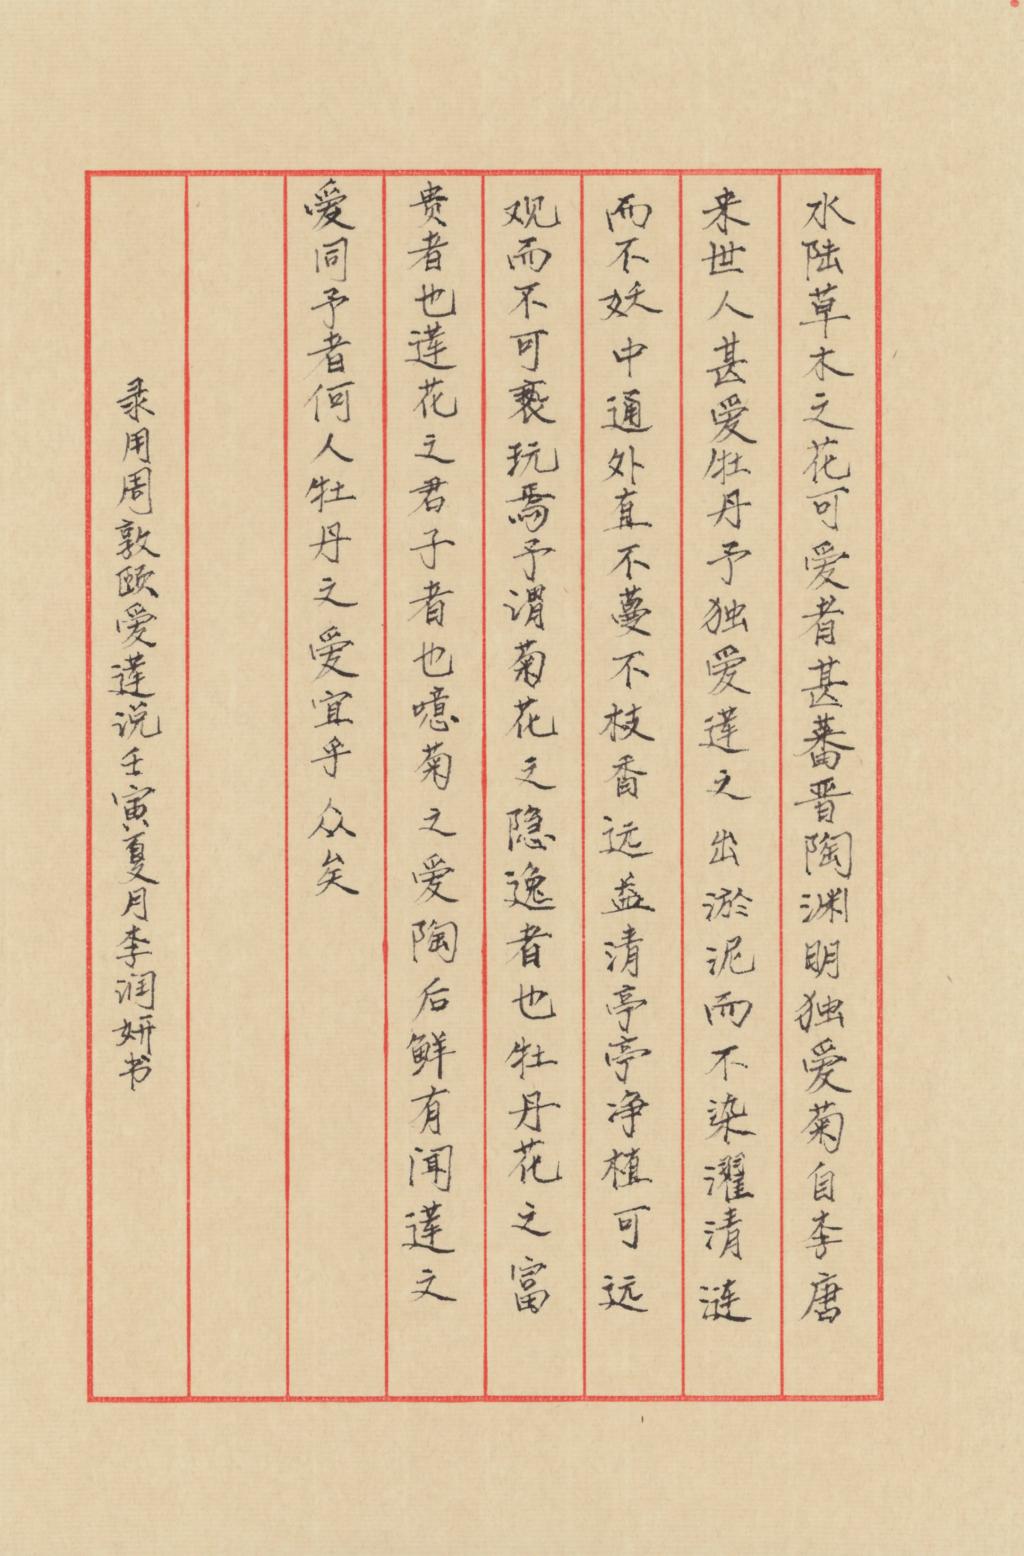 水陆草木之花可爱者甚蕃晋陶渊明独爱菊自李唐
来世人甚爱牡丹予独爱莲之出淤泥而不染濯清涟
而不妖中通外直不蔓不枝香远益清亭亭净植可远
观而不可亵玩焉予谓菊花之隐逸者也牡丹花之富
贵者也莲花之君子者也噫菊之爱陶后鲜有闻莲之
爱同予者何人牡丹之爱宜乎众矣
录用周敦颐爱莲说壬寅夏月李润妍书